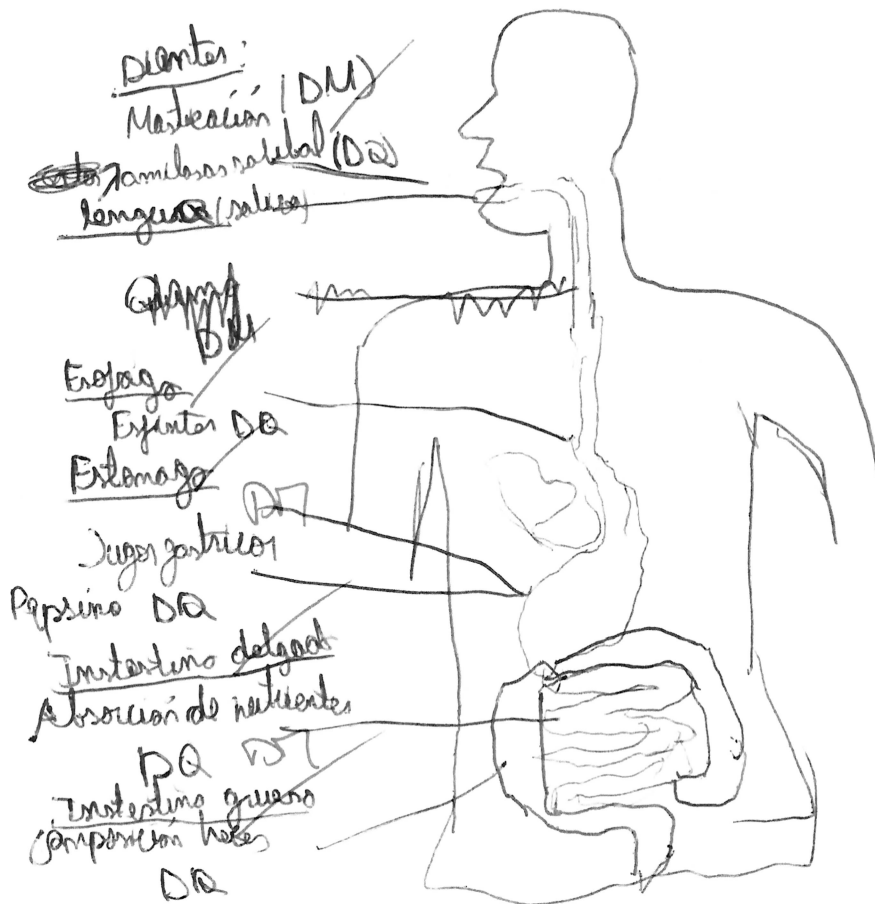 Dientes:
Masticación (DM)
amilasas salibal (DQ)
lengua (saliva)
DM
Esofago
Esfinter DQ
Estomago
DM
Jugos gastricos
Pepsina DQ
Instestino delgado
Absorción de nutrientes
DQ DM
Instestino grueso
composición heces
DQ